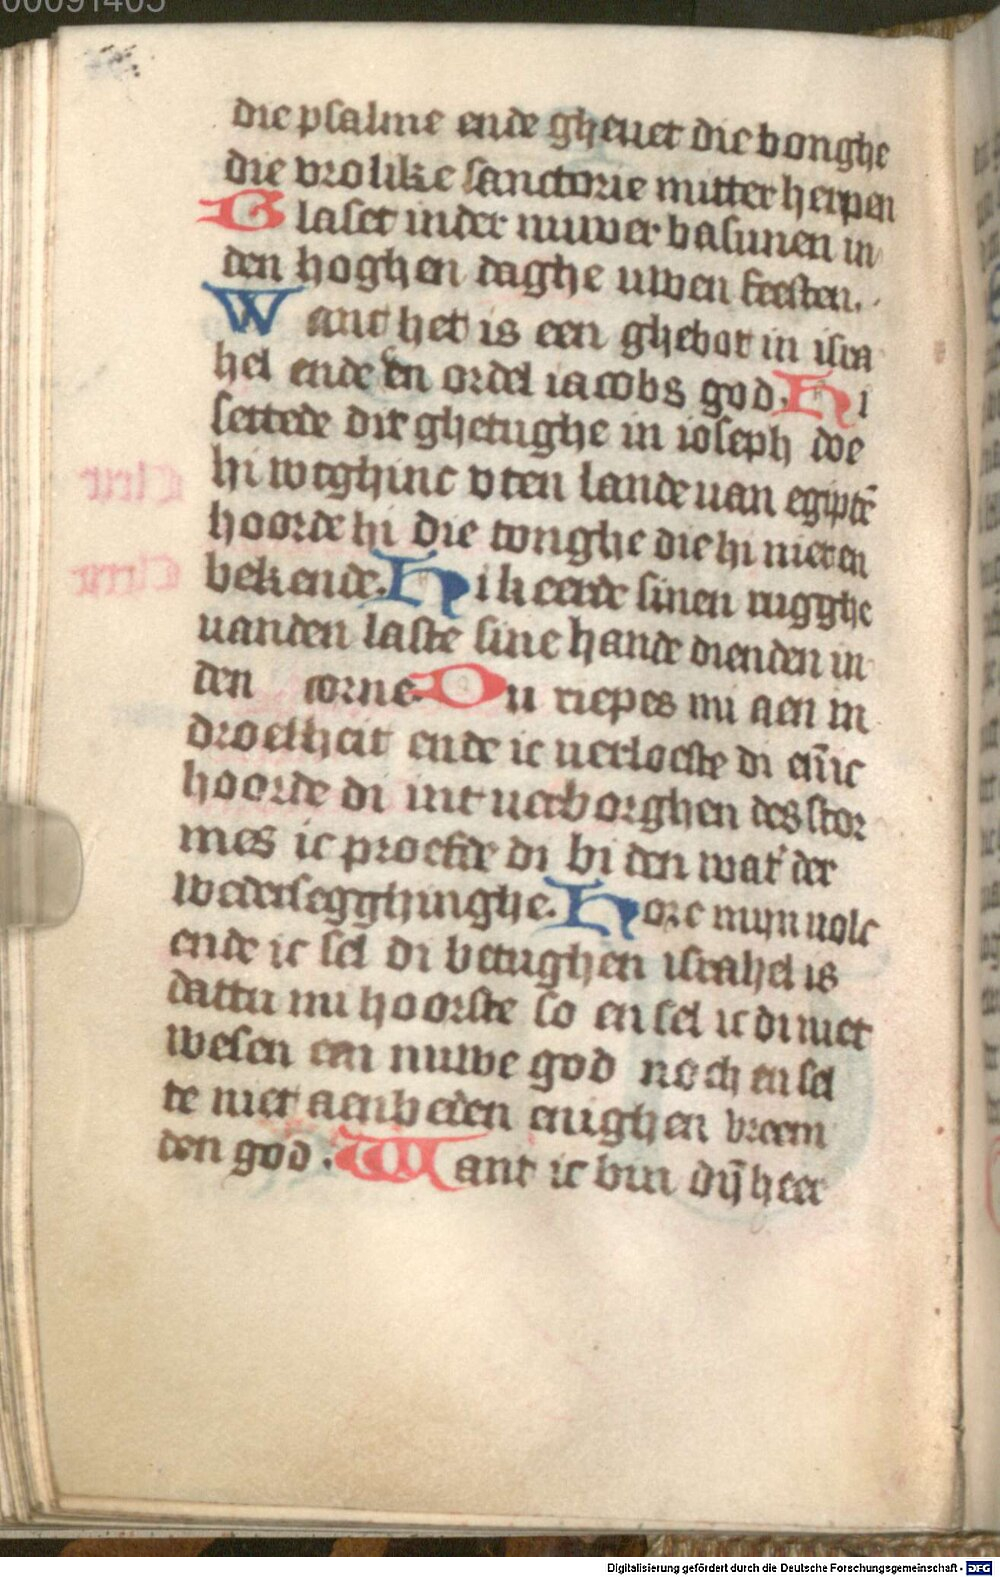 00091405
die psalme ende gheuet die bonghe
die vrolike sanctorie mitter herpen
Blaset in der nuwer basunen in
den hoghen daghe uwen feesten.
Want het is een ghebot in isra
hel ende en ordel iacobs god. Hi
settede dit ghetughe in ioseph doe
hi wtghinc vten lande uan egipte̅
hoorde hi die tonghe die hi niet en
bekende. Hi keerde sinen rugghe
uanden laste sine hande dienden in
den corne. Du riepes mi aen in
droefheit ende ic uerloeste di en̅ ic
hoorde di int uerborghen des stor
mes ic proefde di bi den wat' der
wedersegghinghe. Hore myn uolc
ende ic sel di betughen israhel is
dattu mi hoorste so en sel ic di niet
wesen een nuwe god noch en sel
te niet aenbeden enighen vreem
den god. Want ic bin dy̅ heer
Digitalisierung gefördert durch die Deutsche Forschungsgemeinschaft - DFG